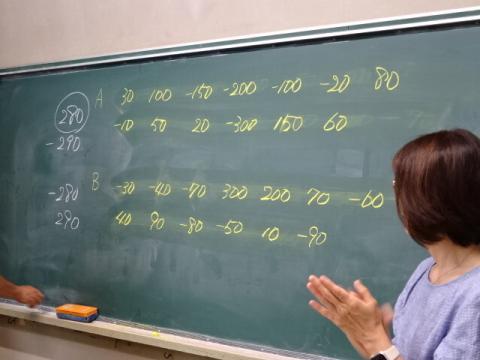 A 30 100 -150 -200 -100 -20 80
280 -10 50 20 -300 150 60
-290
-280 B -30 -40 -70 300 200 70 -60
290 40 90 -80 -50 10 -90